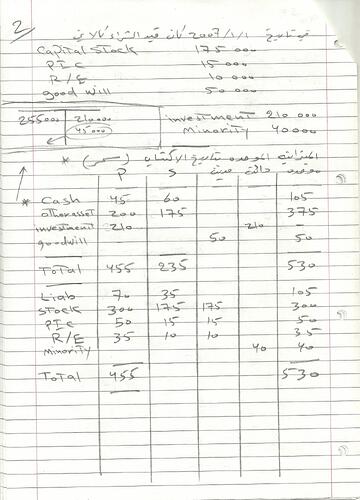 2
في تاريخ 2007/1/1 كان قيد الشراء كالاتي
Capital Stock 175 000
PIC 15 000
R/E 10 000
good will 50 000
255000 210000 investment 210 000
45000 Minority 40000
* الميزانية الموحدة بتاريخ الاكتتاب ( ) *
P S مدينة دائنة موحده
Cash 45 60 105
other asset 200 175 375
investment 210 210
goodwill 50 50
Total 455 235 530
Liab 70 35 105
Stock 300 175 175 300
PIC 50 15 15 50
R/E 35 10 10 35
Minority 40 40
Total 455 530